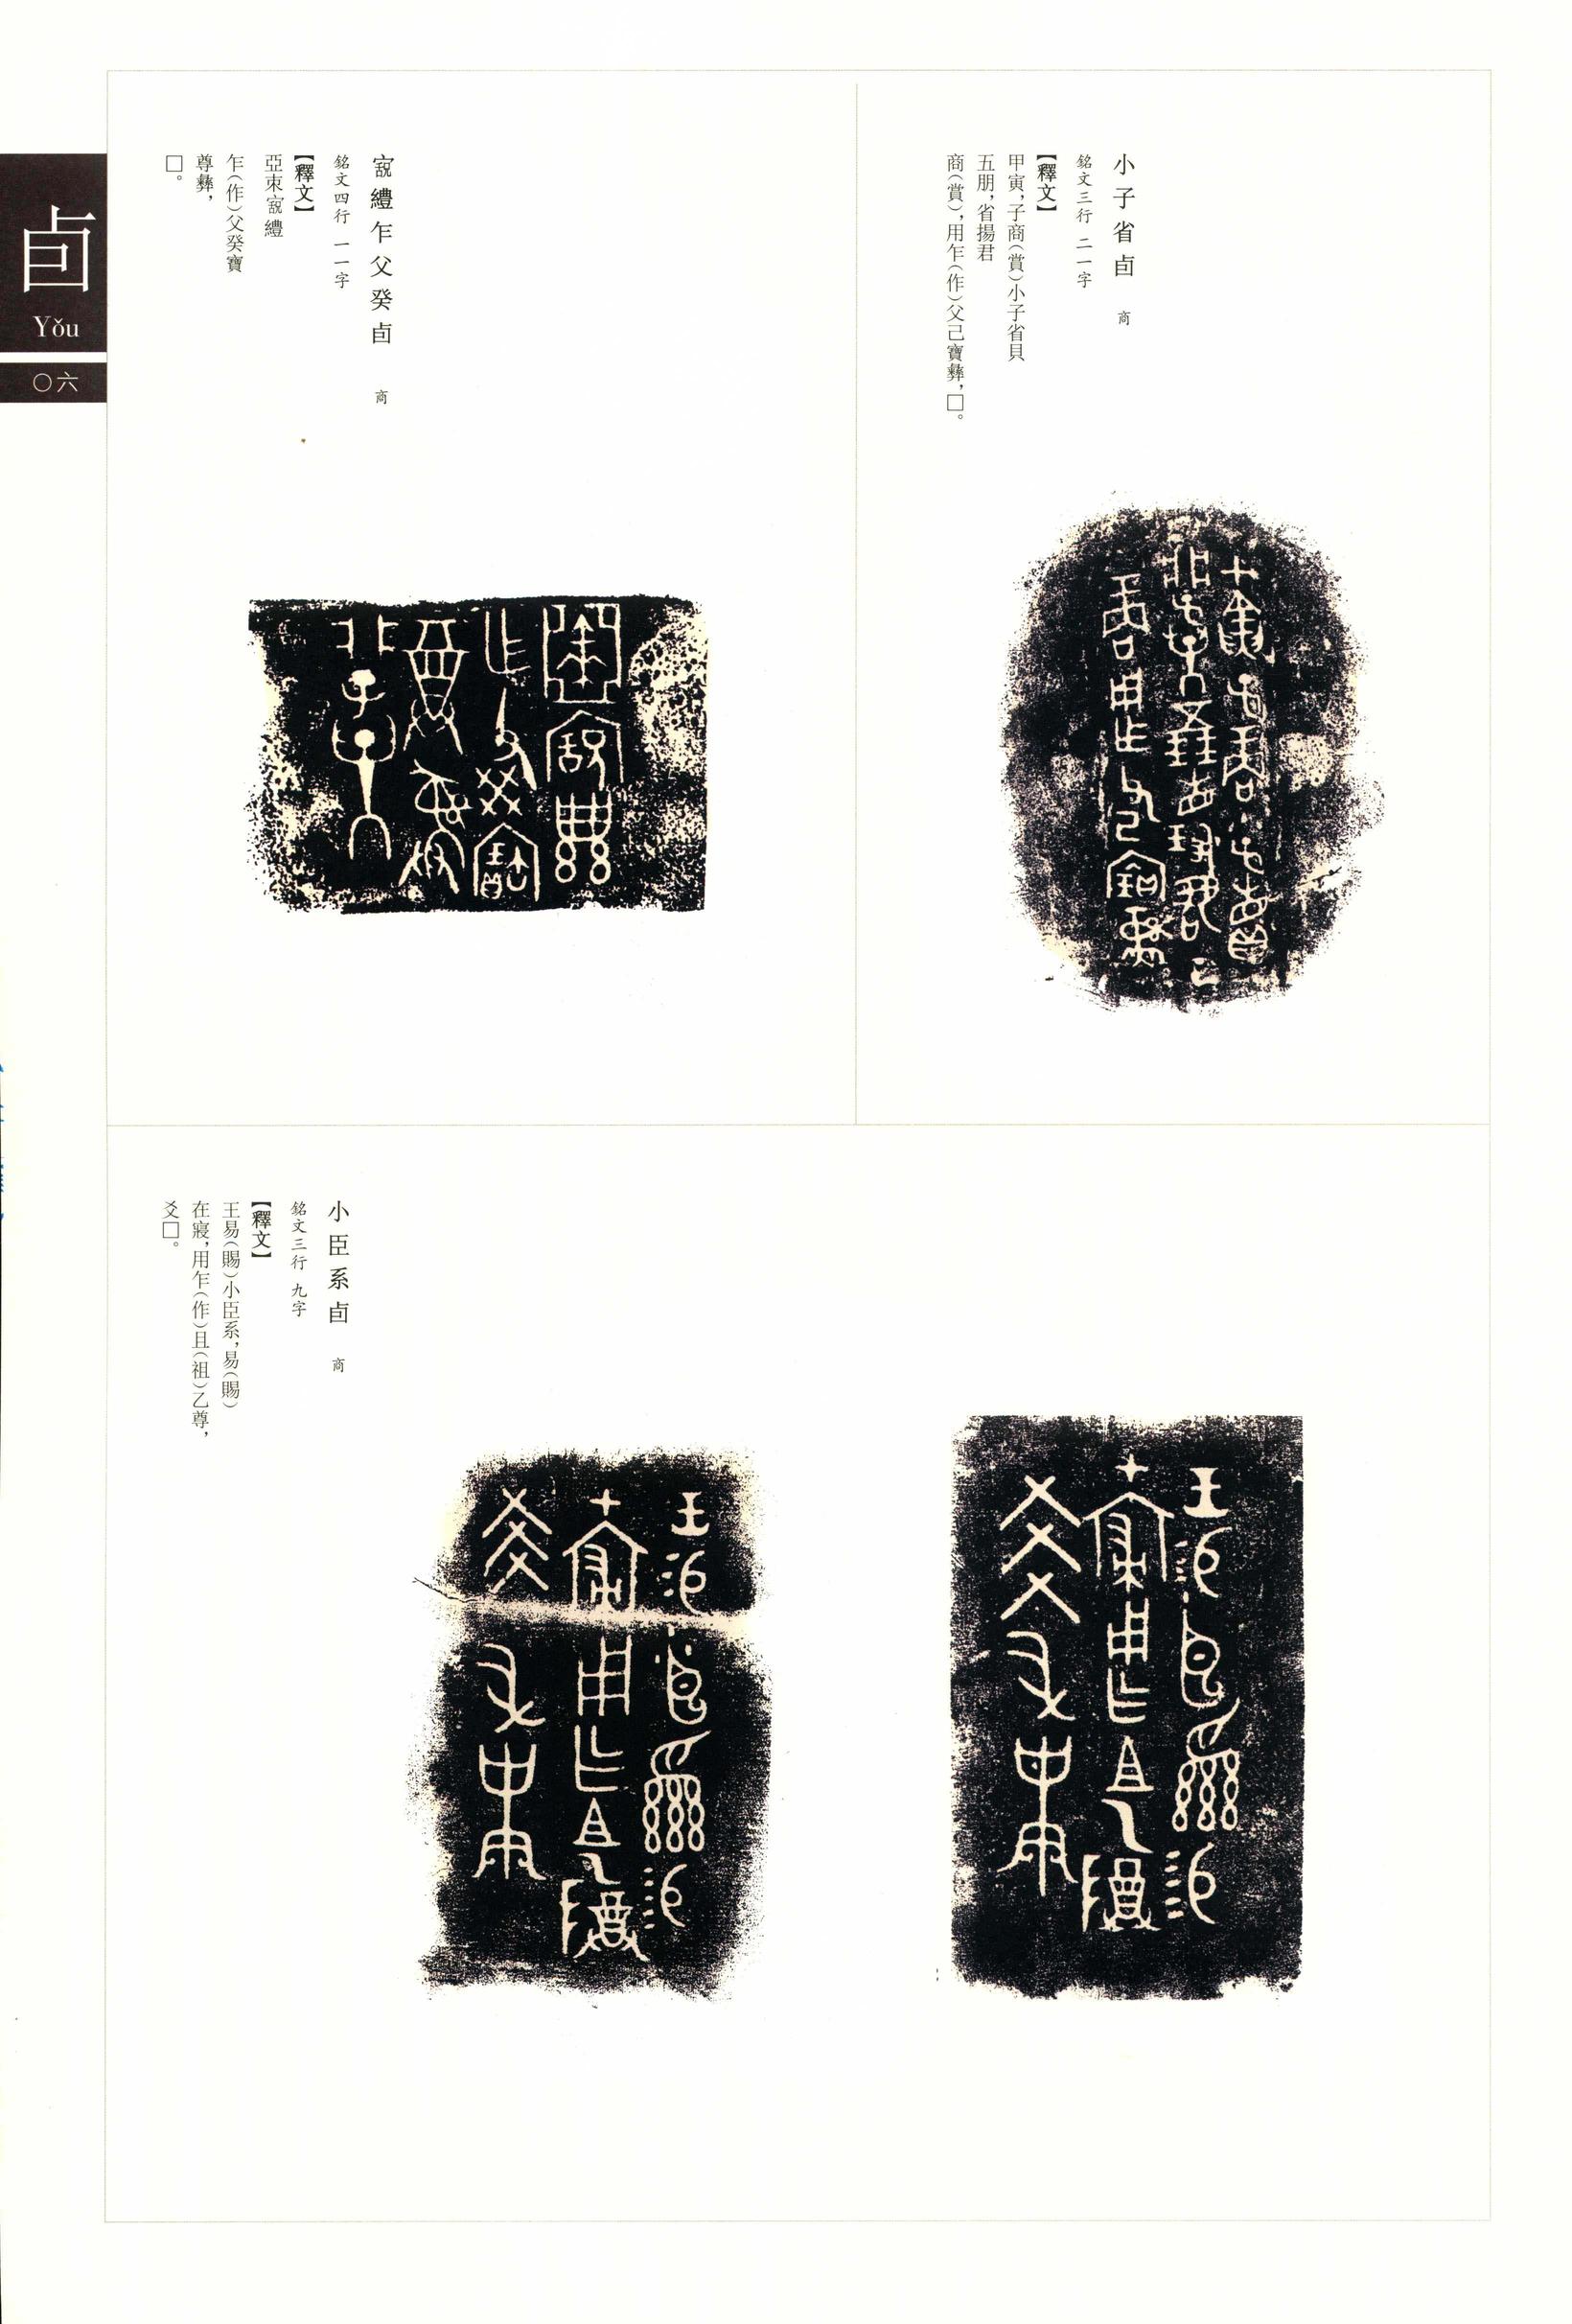 小子省卣 商
銘文三行 二一字
【釋文】
甲寅，子商（賞）小子省貝
五朋，省揚君
商（賞），用乍（作）父己寶彝，□。
乍父癸卣 商
銘文四行 一一字
【釋文】
亞束
乍（作）父癸寶
尊彝，
□。
卣
Yǒu
〇六
小臣系卣 商
銘文三行 九字
【釋文】
王易（賜）小臣系，易（賜）
在寢，用乍（作）且（祖）乙尊，
爻□。